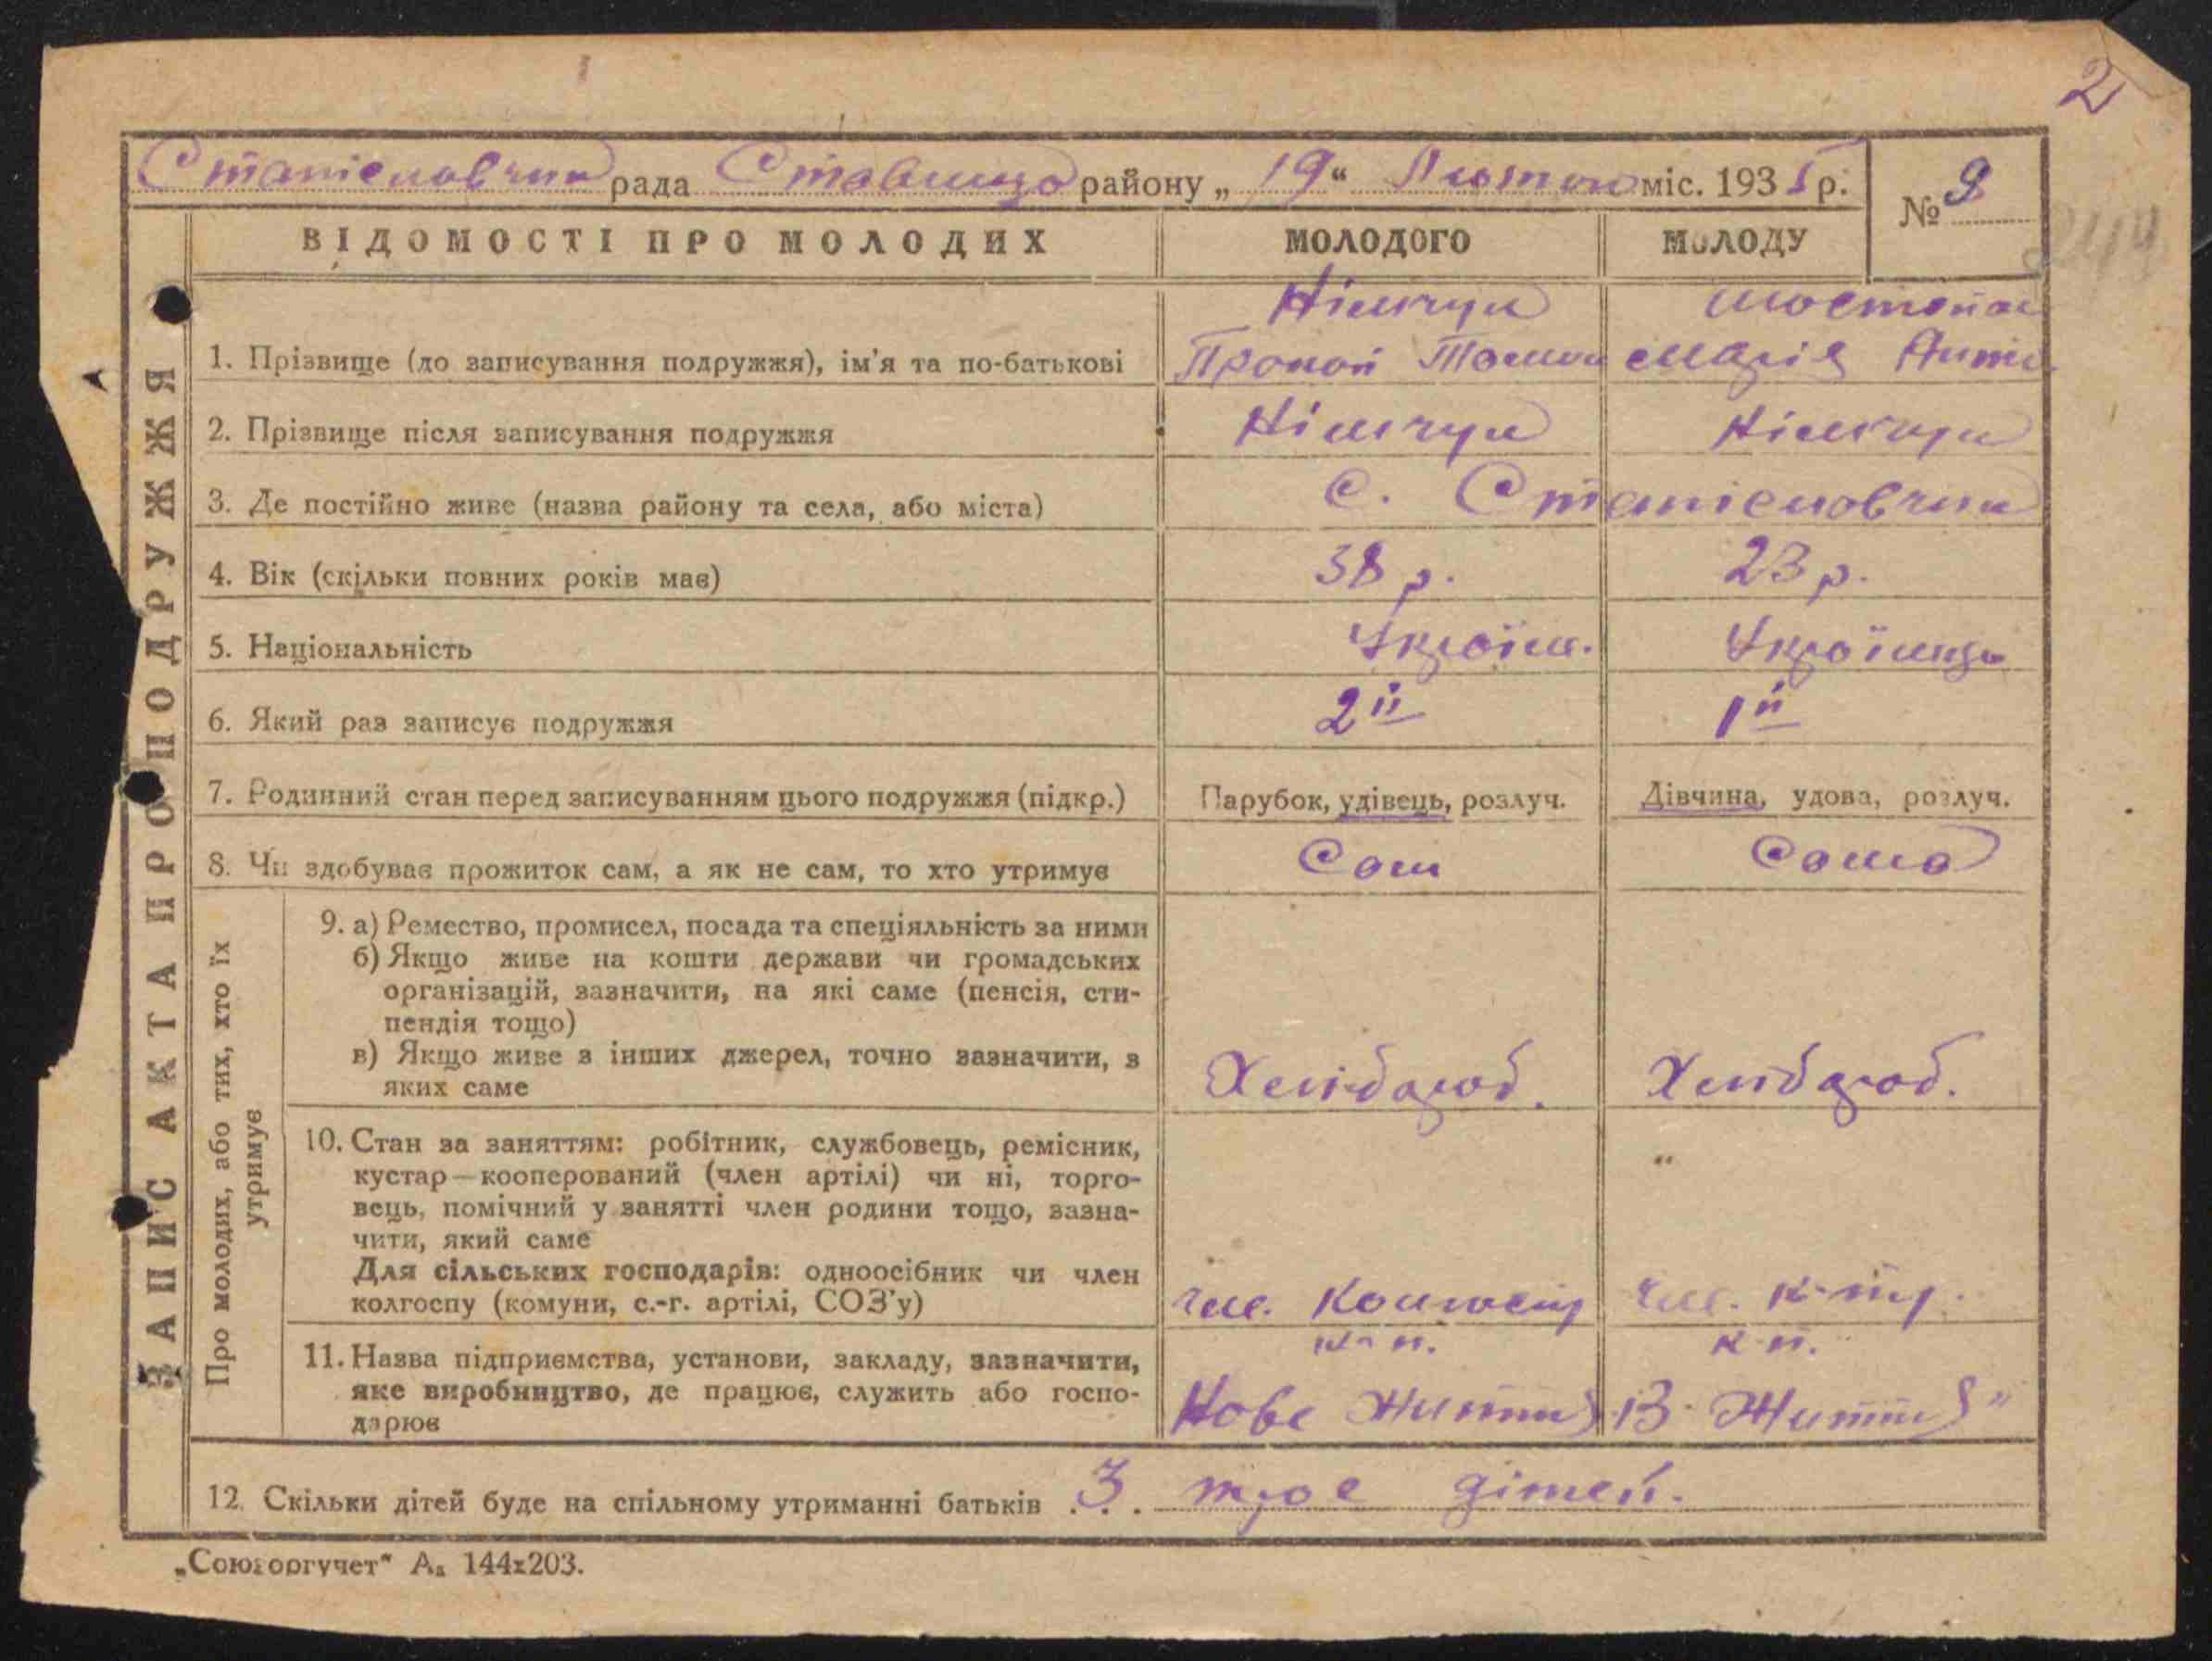 2
Станіславчик рада Ставище району „ 19 “ Лютого міс. 1935 р.
№ 9
244
ВІДОМОСТІ ПРО МОЛОДИХ
МОЛОДОГО
МОЛОДУ
ЗАПИС АКТА ПРО ПОДРУЖЖЯ
1. Прізвище (до записування подружжя), ім'я та по-батькові
Німчук
Прокоп
Марія Анто
2. Прізвище після записування подружжя
Німчук
Німчук
3. Де постійно живе (назва району та села, або міста)
с. Станіславчик
4. Вік (скільки повних років має)
38 р.
23 р.
5. Національність
Україн.
Українка
6. Який раз записує подружжя
2й
1й
7. Родинний стан перед записуванням цього подружжя (підкр.)
Парубок, удівець, розлуч.
Дівчина, удова, розлуч.
8. Чи здобуває прожиток сам, а як не сам, то хто утримує
Сам
Сама
Про молодих, або тих, хто їх
утримує
9. а) Ремество, промисел, посада та спеціяльність за ними
б) Якщо живе на кошти держави чи громадських
організацій, зазначити, на які саме (пенсія, сти-
пендія тощо)
в) Якщо живе з інших джерел, точно зазначити, з
яких саме
Хлібороб.
Хлібороб.
10. Стан за заняттям: робітник, службовець, ремісник,
кустар—кооперований (член артілі) чи ні, торго-
вець, помічний у занятті член родини тощо, зазна-
чити, який саме
Для сільських господарів: одноосібник чи член
колгоспу (комуни, с.-г. артілі, СОЗ'у)
"
чл. Колгоспу
чл. к-пу.
11. Назва підприємства, установи, закладу, зазначити,
яке виробництво, де працює, служить або госпо-
дарює
к-п.
к-п.
Нове Життя
Життя"
12. Скільки дітей буде на спільному утриманні батьків . 3 . троє дітей.
„Союзоргучет“ А₅ 144х203.